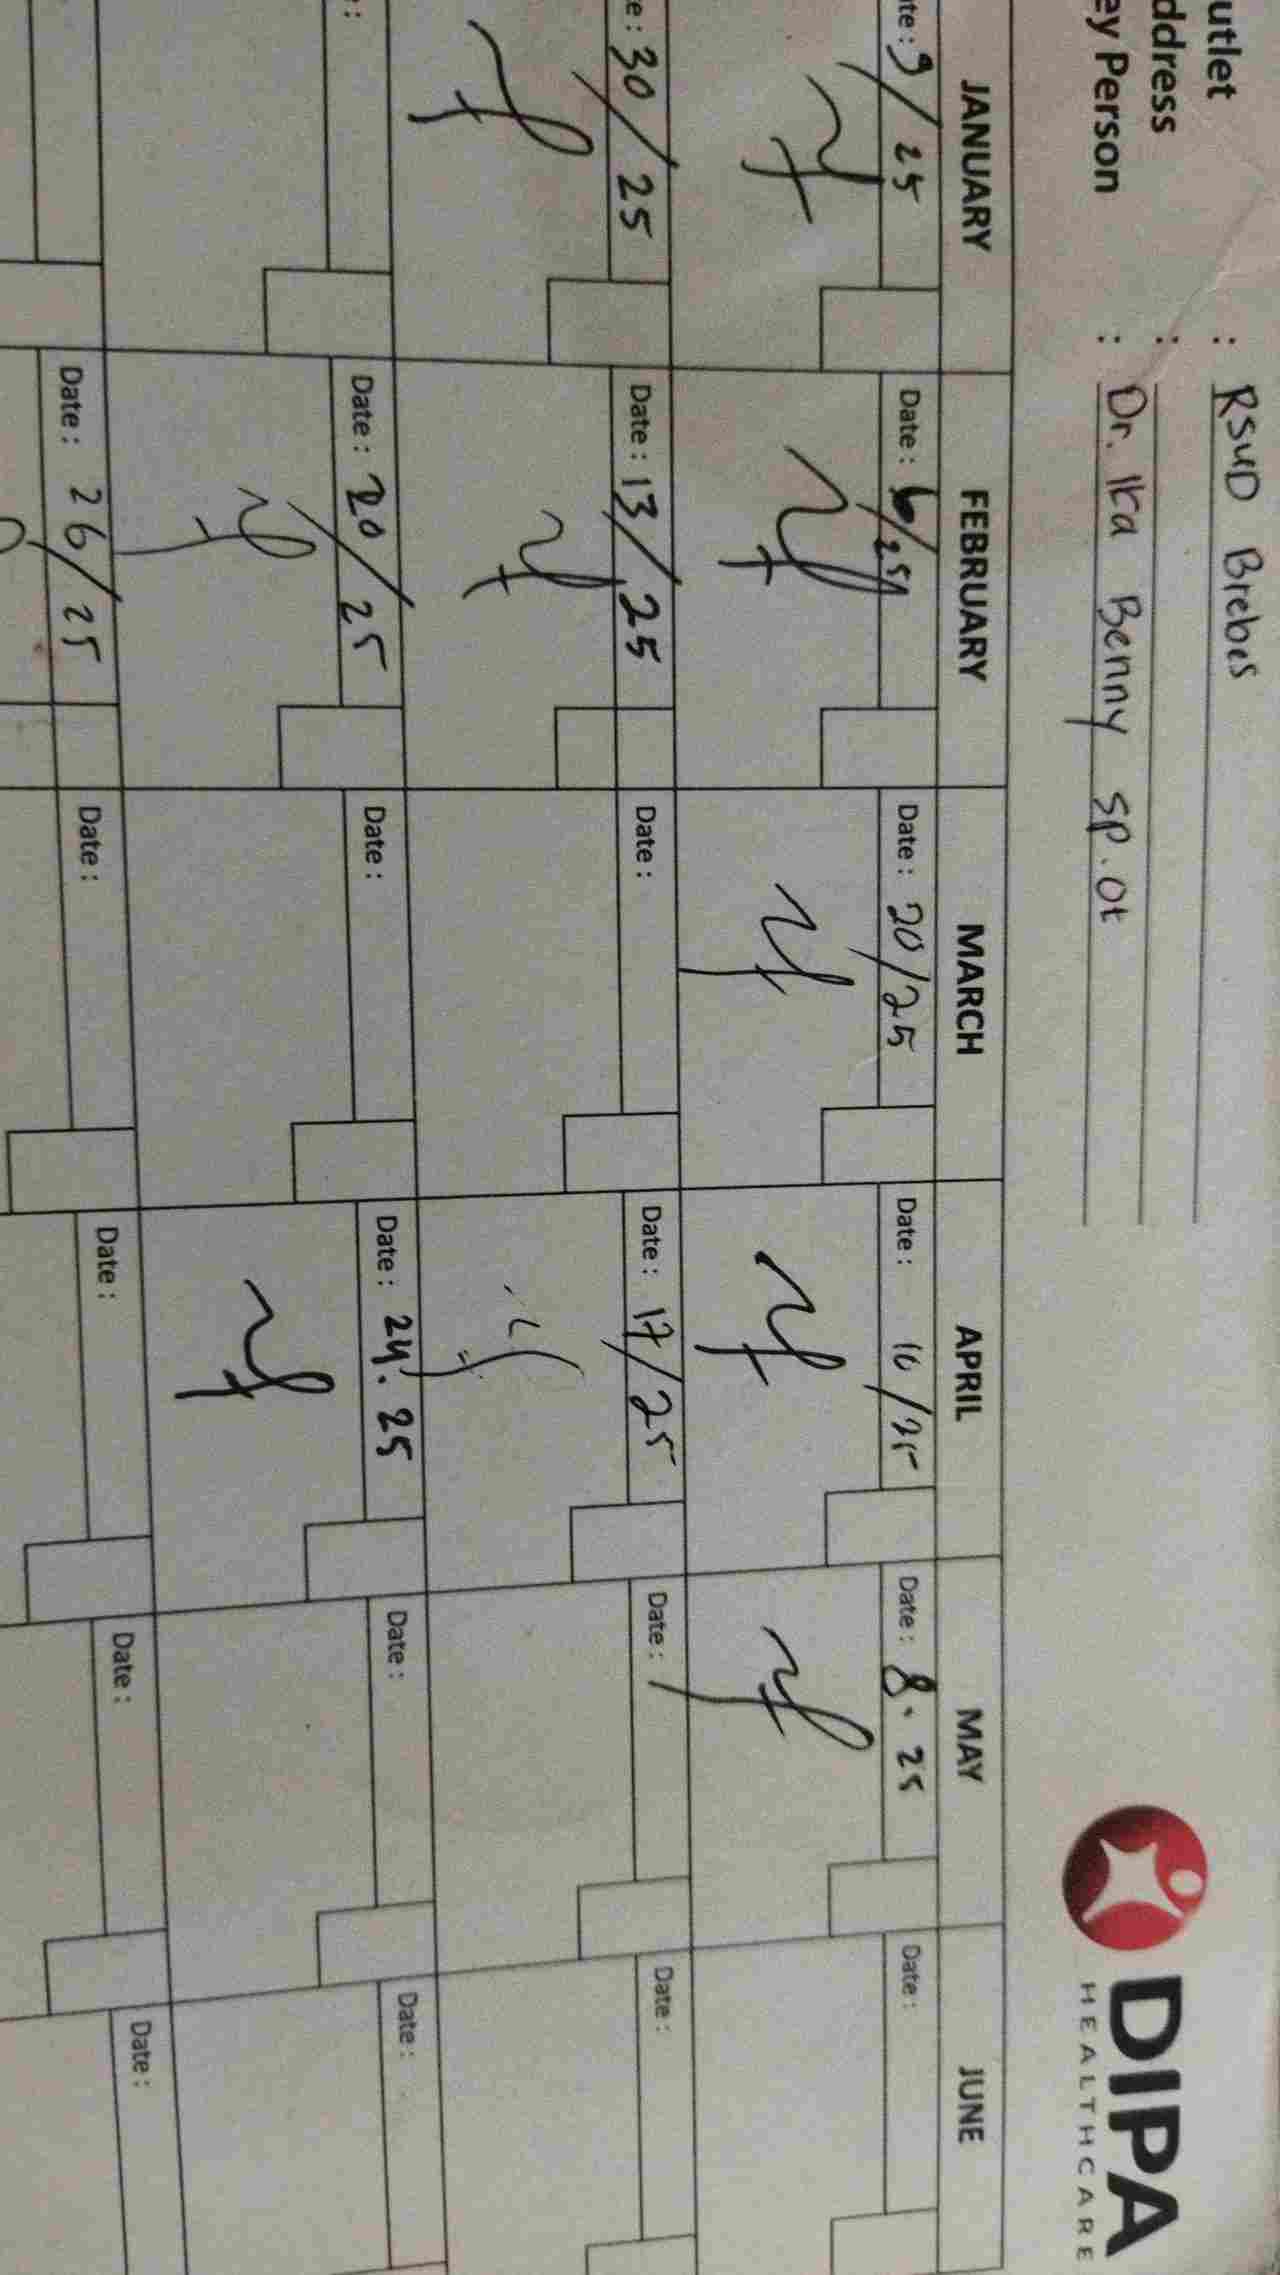 utlet : RSUD Brebes
ddress :
ey Person : Dr. Ika Benny sp.ot
DIPA
HEALTHCARE
JANUARY FEBRUARY MARCH APRIL MAY JUNE
ate : 9/25 Date : 6/25 Date : 20/25 Date : 10/25 Date : 8.25 Date :
e : 30/25 Date : 13/25 Date : Date : 17/25 Date : Date :
: Date : 20/25 Date : Date : 24.25 Date : Date :
Date : 26/25 Date : Date : Date : Date :